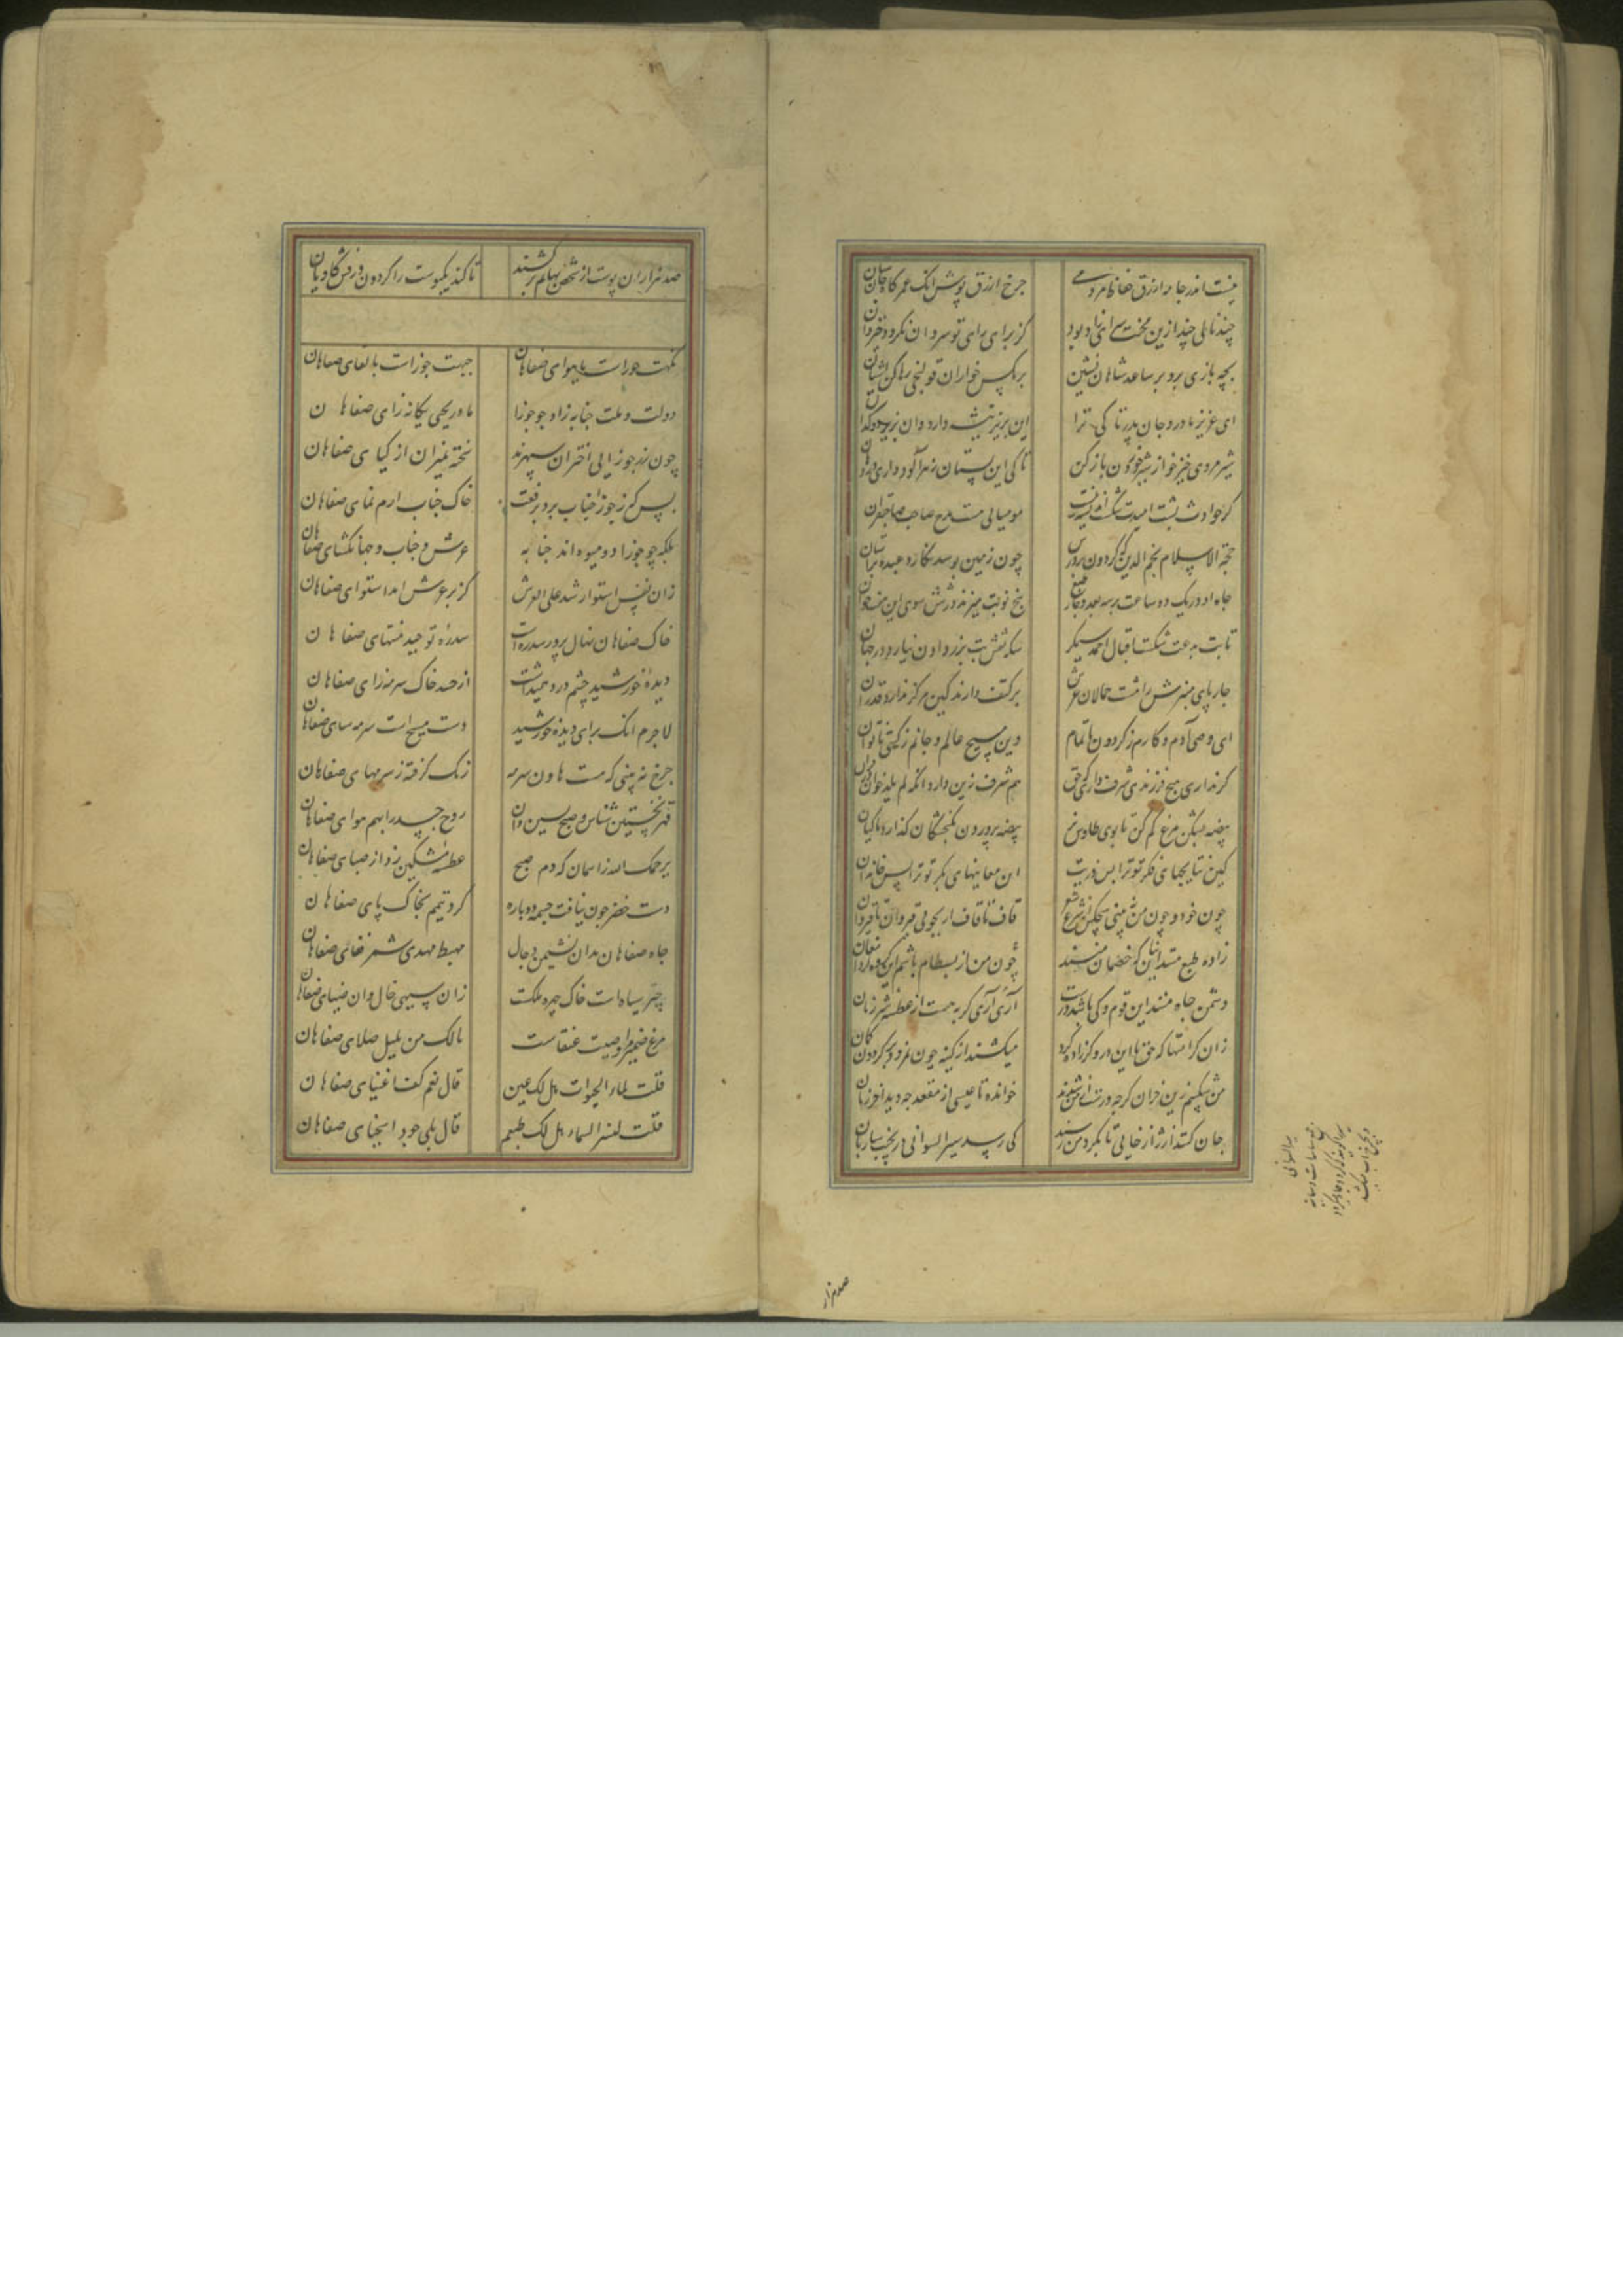 نیست اندر جامه ازرق حفاظ مردمی چرخ ازرق پوش اینک عمر کاه جان ستان
چند نالی چند ازین محنت سرای زاد و بود کز برای رای تو سروان نکردد خیروان
بچه بازی برو بر ساعد شاهان نشین بر مکس خواران قولنجی رها کن آشیان
ای عزیز مادر و جان پدر تا کی ترا این بزیر تیشه دارد وان بزیر دوکدان
شیر مردی خیز خو از شیر خوردن باز کن تا کی این پستان زهرآلود داری در دهان
کر حوادث پشت امیدت شکست اندیشه نیست مومیایی هست مدح صاحب صاحبقران
حجة الاسلام نجم الدین که کردون بر درش چون زمین بوسد نکارد عبده بر آستان
جاه او در یک دو ساعت بر سه بعد و چار طبع پنج نوبت میزند در شش سوی این هفتخوان
تا بت بدعت شکست اقبال احمد سیمکر سکه نقش بت بزر دادن نیارد در جهان
چارپای منبرش را هشت حمالان عرش بر کتف دارند کین مرکز ندارد قدر آن
ای وصی آدم و کارم ز کردون ناتمام وی مسیح عالم و جانم ز کیتی ناتوان
کر نداری هیچ فرزندی شرف داری که حق هم شرف زین دارد اینک لم یلد خوان از قران
بیضه بشکن مرغ کم کن تا بوی طاوس نر بیضه پروردن بکنجشکان گذار و ماکیان
کین نتایجهای فکر تو ترا بس ذریت ان معانیهای بکر تو ترا بس خاندان
چون خود و چون من نبینی هیچکس در شرع و شعر قاف تا قاف ار بجویی قیروان تا قیروان
زاده طبع منند اینان که خصمان منند
دشمن جاه منند این قوم و کی باشند دوست آری آری کربه هست از عطسه شیر ژیان
زان کرامتها که حق با این دروکر زاده کرد میکشند از کینه چون نمرود بر کردون کمان
خوانده تا عیسی از مقعد چه دید آخر زمان
جان کنند از ژاژخایی تا بکرد من رسند کی رسد سیر السوانی در نجیب ساربان
سیر السوانی
صد هزار
صد هزاران پوست از شخص بهایم برکشند تا کند یکپوست را کردون درفش کاویان
نکهت حوراست یا هوای صفاهان جبهت جوزاست یا لقای صفاهان
دولت و ملت جنابه زاد چو جوزا مادر یحیی یکانه زای صفاهان
چون زر جوزایی اختران سپهرند سخته بمیزان از کیای صفاهان
پس که ز جوزا جناب برد برفعت خاک جناب ارم نمای صفاهان
بلکه چو جوزا دو میوه اند جنابه عرش و جناب و جهانکشای صفاهان
زان نفس استوار شد علی العرش کز بر عرش امد استوای صفاهان
خاک صفاهان نهال پرور سدره است سدره توحید منتهای صفاهان
دیده خورشید چشم درد همیداشت از حسد خاک سرمه زای صفاهان
لاجرم انک برای دیده خورشید دست مسیح است سرمه سای صفاهان
چرخ نه بینی که هست هاون سرمه رنک کرفته ز سرمهای صفاهان
قهر نخستین شناس و صبح پسین دان روح جسد را بهم هوای صفاهان
یرحمک الله زد اسمان که دم صبح عطسه مشکین زد از صبای صفاهان
دست خضر چون نیافت چشمه دوباره کرد تیمم بخاک پای صفاهان
چاه صفاهان مدان نشیمن دجال مهبط مهدی شمر فضای صفاهان
چتر سیاه است خاک چهره ملکت زان سیهی خال وان ضیای صفاهان
مرغ ضمیرا وصیت عنقاست مالک من بلبل صلای صفاهان
قلت لماء الحیوة هل لک عین قال نعم کف اغنیای صفاهان
قلت لنسر السماء هل لک طعم قال بلی جود اسخیای صفاهان